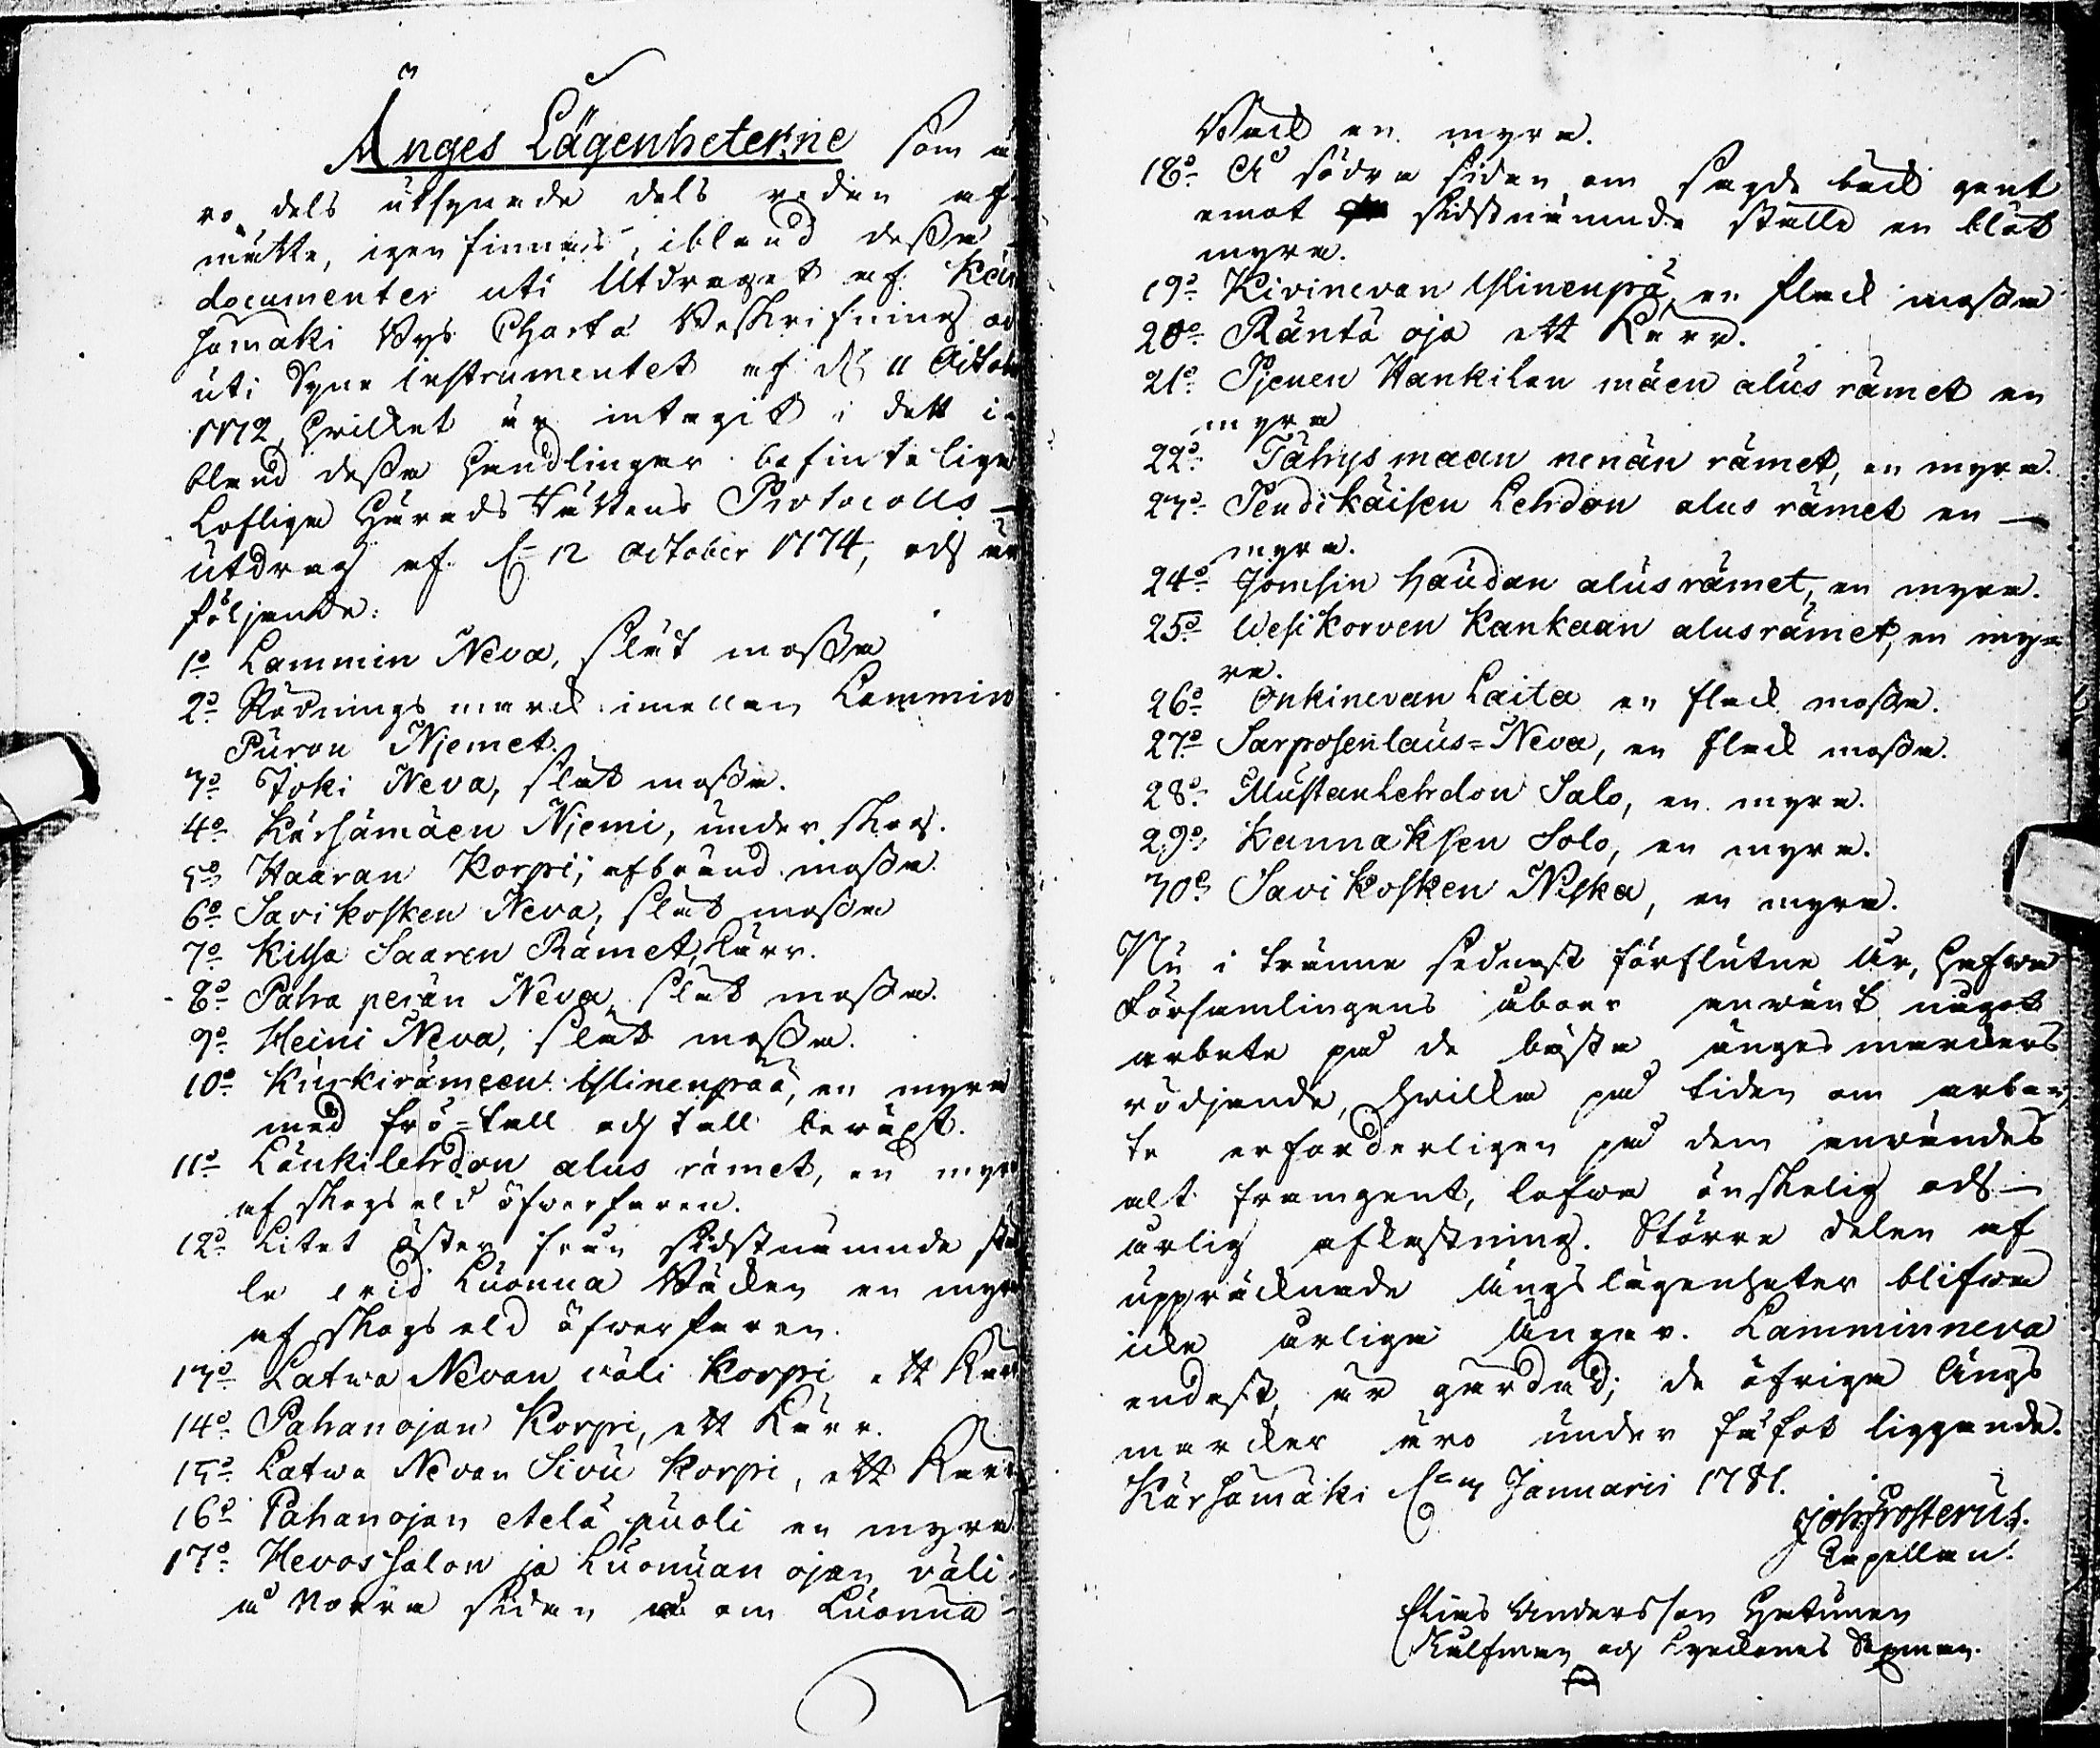 Änges Lägenheterne som ä
ro dels utsynade dels redan af
mätte, igenfinnas, ibland dessa
documenter uti Utdraget af Kär
samäki Bys Charta Beskrifning oc
uti Syne instrumentet af d. 11 Octob
1772, hvilket är intagit i dett i
bland dessa Handlingar befinteliga
Loflige Härads Rättens Protocolls
utdrag af d. 12 October 1774, och är
följande:
1o Lammin Neva, slåt mossa
2o Rödnings marck imellan Lammin
Puron Njemet.
3o Joki Neva, slåt mossa.
4o Kärsämäen Njemi, under skog.
5o Haaran Korpi, afbränd mossa.
6o Savikosken Neva, slåt mossa
7o Kilsa Saaren Rämet, Kärr.
8o Paha perän Neva, slåt mossa.
9o Heini Neva, slåt mossa.
10o Kurkirämeen Ylinenpää, en myra
med frö-tall och tall beväxt.
11o Länkilehdon alus rämet, en myra
af skogs eld öfwerfaren.
12o Litet öster från sidstnämnde stäl
le wid Luonua Bäcken en myra
af skogs eld öfwerfaren.
13o Latwa Nevan väli Korpi ett Kärr
14o Pahanojan Korpi, ett Kärr.
15o Latwa Nevan Sivu Korpi, ett Kärr
16o Pahanojan etelä puoli en myra
17o Hevossalon ja Luonuan ojan väli
å Norra sidan om Luonua
Bäck en myra.
18o På södra sidan om sagde bäck gent
emot sidstnämnde ställe en blöt
myra.
19o Kivinevan Ylinenpä, en fläck mossa
20o Räntä oja ett Kärr.
21o Pjenen Hankilan mäen alus rämet en
myra
22o Tähys maan nenän rämet, en myra.
23o Pendikäisen Lehdon alus rämet en
myra.
24o Jomsin haudan alus rämet, en myra.
25o Wesikorven Kankaan alus rämet, en my
ra.
26o Onkinevan Laita en fläck mossa.
27o Sarposenlaus=Neva, en fläck mossa.
28o Mustanlehdon Salo, en myra.
29o Kannaksen Solo, en myra.
30o Savikosken Niska, en myra.
Nu i tränne sednast förflutne år, hafwa
Församlingens åboer anwänt något
arbete på de bäste ängesmarckers
rödjande, hvilka på tiden om arbe
te erforderligen på dem anwändes
alt framgent, lofwa önskelig och
årlig afkastning. Större delen af
uppräcknade ängslägenheter blifwa
icke årliga Ängar. Lamminneva
endast, är gärdad; de öfriga Ängs
marcker äro under fäfot liggande.
Kärsämäki d. 3 Januarii 1781.
Joh: Frosterus.
Capellan.
Elias Andersson Hetunen
Kulfman och Kyrckones Sexman.